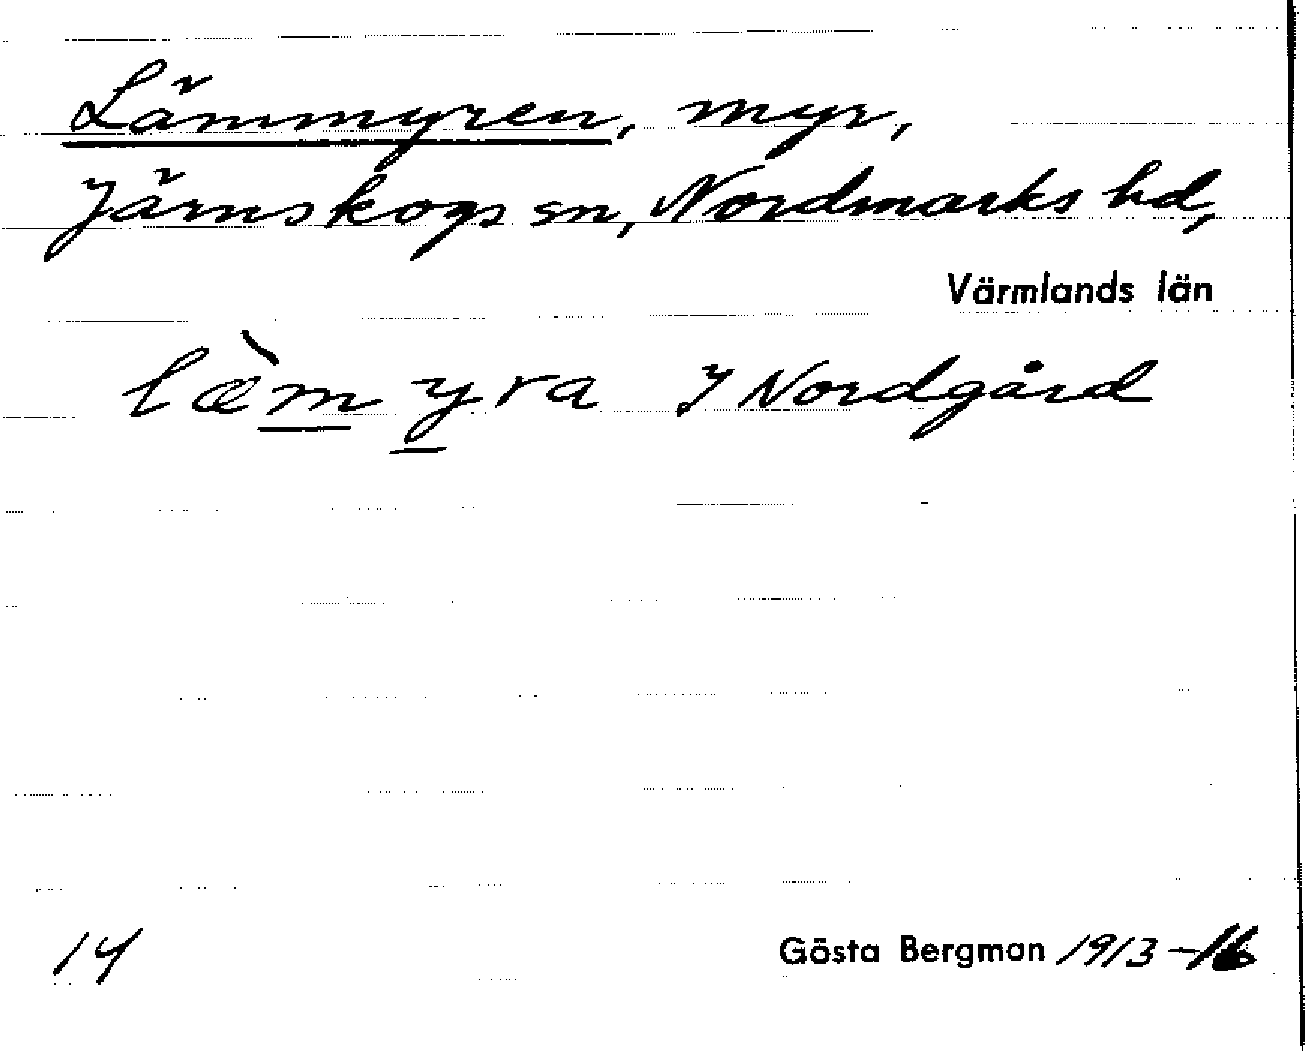 Lämmyren, myr,
Järnskogs sn, Nordmarks hd,
Värmlands län
læ̀myra I Nordgård
14
Gösta Bergman 1913-16